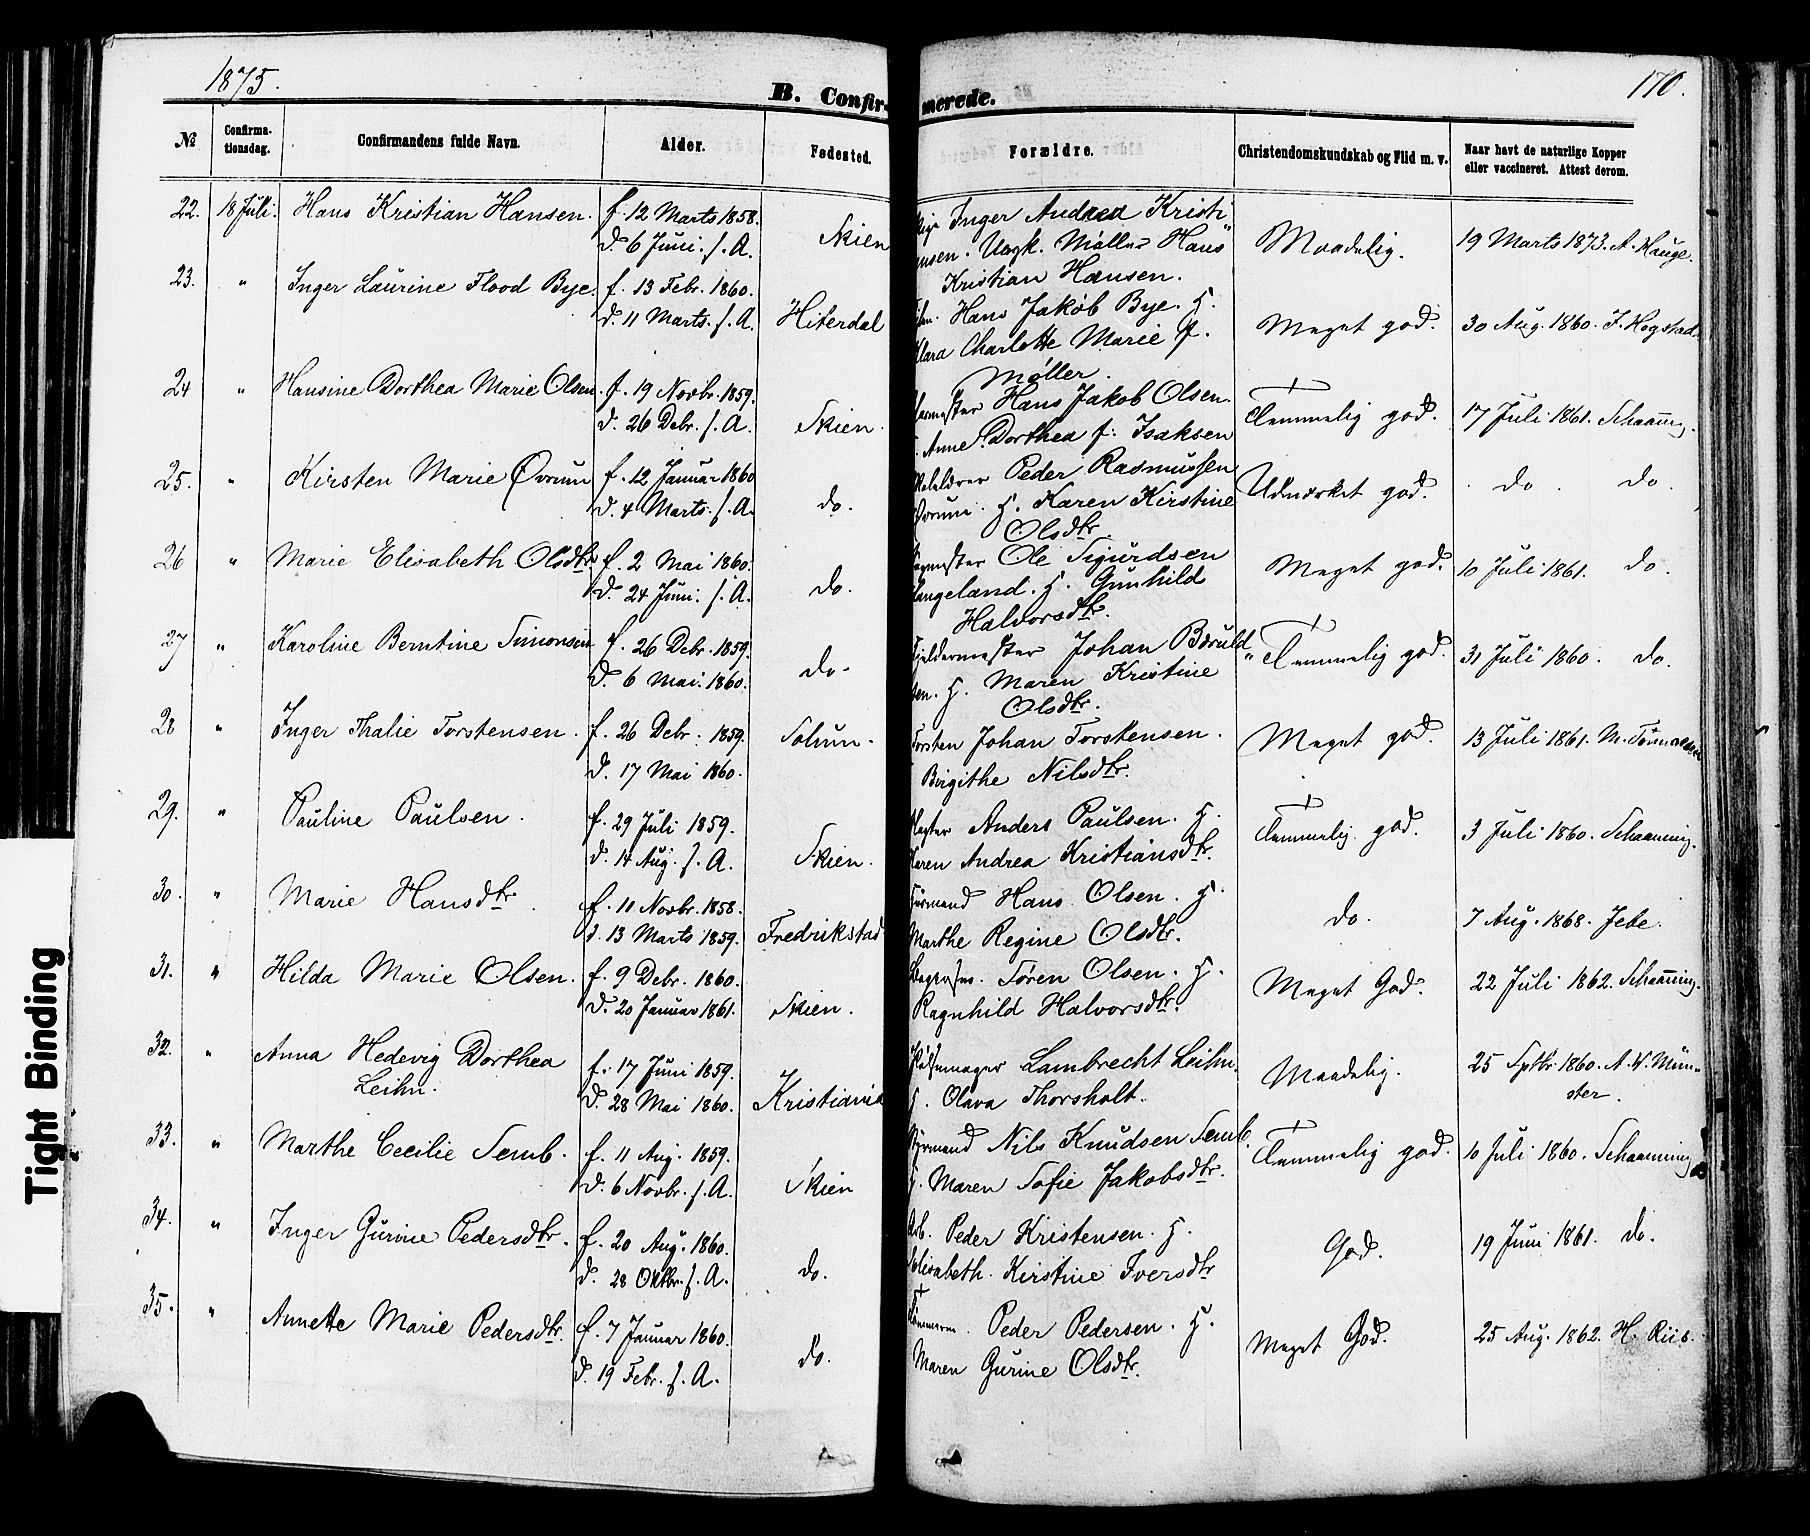 1875.
B. Confir-
merede.
170.
№
Confirma-
tionsdag.
Confirmandens fulde Navn.
Alder.
Fødested.
Forældre.
Christendomskundskab og Flid m. v.
Naar havt de naturlige Kopper
eller vaccineret. Attest derom.
22. 18 Juli. Hans Kristian Hansen. f. 12 Marts 1858.
d. 6 Juni. s. A. Skien
Inger Andrea Kristi
ensen. Ungk. Møller Hans
Kristian Hansen.
Maadelig. 19 Marts 1873. A. Hauge.
23. " Inger Laurine Flood Bye. f. 13 Febr. 1860.
d. 11 Marts. s. A. Hiterdal
Hans Jakob Bye. H.
Klara Charlotte Marie f.
Møller.
Meget god. 30 Aug. 1860. J. Hogstad.
24 " Hansine Dorthea Marie Olsen. f. 19 Novbr. 1859.
d. 26 Debr. s. A. Skien.
Hans Jakob Olsen.
Anne Dorthea f. Isaksen
Temmelig god. 17 Juli 1861. Schaaning.
25. " Kirsten Marie Øvrum f. 12 Januar 1860
d. 4 Marts. s. A. do.
Peder Rasmussen
Øvrum. H. Karen Kirstine
Olsdtr.
Udmærket god. do. do.
26 " Marie Elisabeth Olsdtr. f. 2 Mai 1860.
d. 24 Juni. s. A. do.
Ole Sigurdsen
Langeland. H. Gunhild
Halvorsdtr.
Meget god. 10 Juli 1861. do.
27 " Karoline Berntine Simonsen f. 26 Debr. 1859.
d. 6 Mai. 1860. do.
Johan Bæruld
sen. H. Maren Kristine
Olsdtr.
Temmelig god. 31 Juli 1860. do.
28 " Inger Thalie Torstensen. f. 26 Debr. 1859.
d. 17 Mai 1860. Solum.
Torsten Johan Torstensen.
Birgithe Nilsdtr.
Meget god. 13 Juli 1861. M.
29. " Pauline Paulsen. f. 29 Juli 1859.
d. 14 Aug. s. A. Skien.
Anders Paulsen. H.
Karen Andrea Kristiansdtr.
Temmelig god. 3 Juli 1860. Schaanning.
30. " Marie Hansdtr. f. 11 Novbr. 1858.
d. 13 Marts 1859. Fredrikstad
Hans Olsen. H.
Marthe Regine Olsdtr.
do. 7 Aug. 1868. Jebe.
31. " Hilda Marie Olsen. f. 9 Debr. 1860.
d. 20 Januar 1861. Skien.
Søren Olsen. H.
Ragnhild Halvorsdtr.
Meget God. 22 Juli 1862. Schaaning.
32. " Anna Hedevig Dorthea
Leihn. f. 17 Juni 1859.
d. 28 Mai 1860. Kristiania
Pølsemager Lambrecht Leihn.
H. Olava Thorsholt.
Maadelig. 25 Sptbr. 1860. A. W. Mün-
ster.
33. " Marthe Cecilie Semb. f. 11 Aug. 1859.
d. 6 Novbr. s. A. Skien
Styrmand Nils Knudsen Semb.
H. Maren Sofie Jakobsdtr.
Temmelig god. 10 Juli 1860. Schaanning
34. " Inger Gurine Pedersdtr. f. 20 Aug. 1860.
d. 28 Oktbr. s. A. do.
Arb. Peder Kristensen. H.
Elisabeth. Kirstine Iversdtr
God. 19 Juni 1861. do.
35. " Annette Marie Pedersdtr. f. 7 Januar 1860.
d. 19 Febr. s. A. do.
Tømmerm. Peder Pedersen. H.
Maren Gurine Olsdtr.
Meget God. 25 Aug. 1862. H. Riis.
Tight Binding